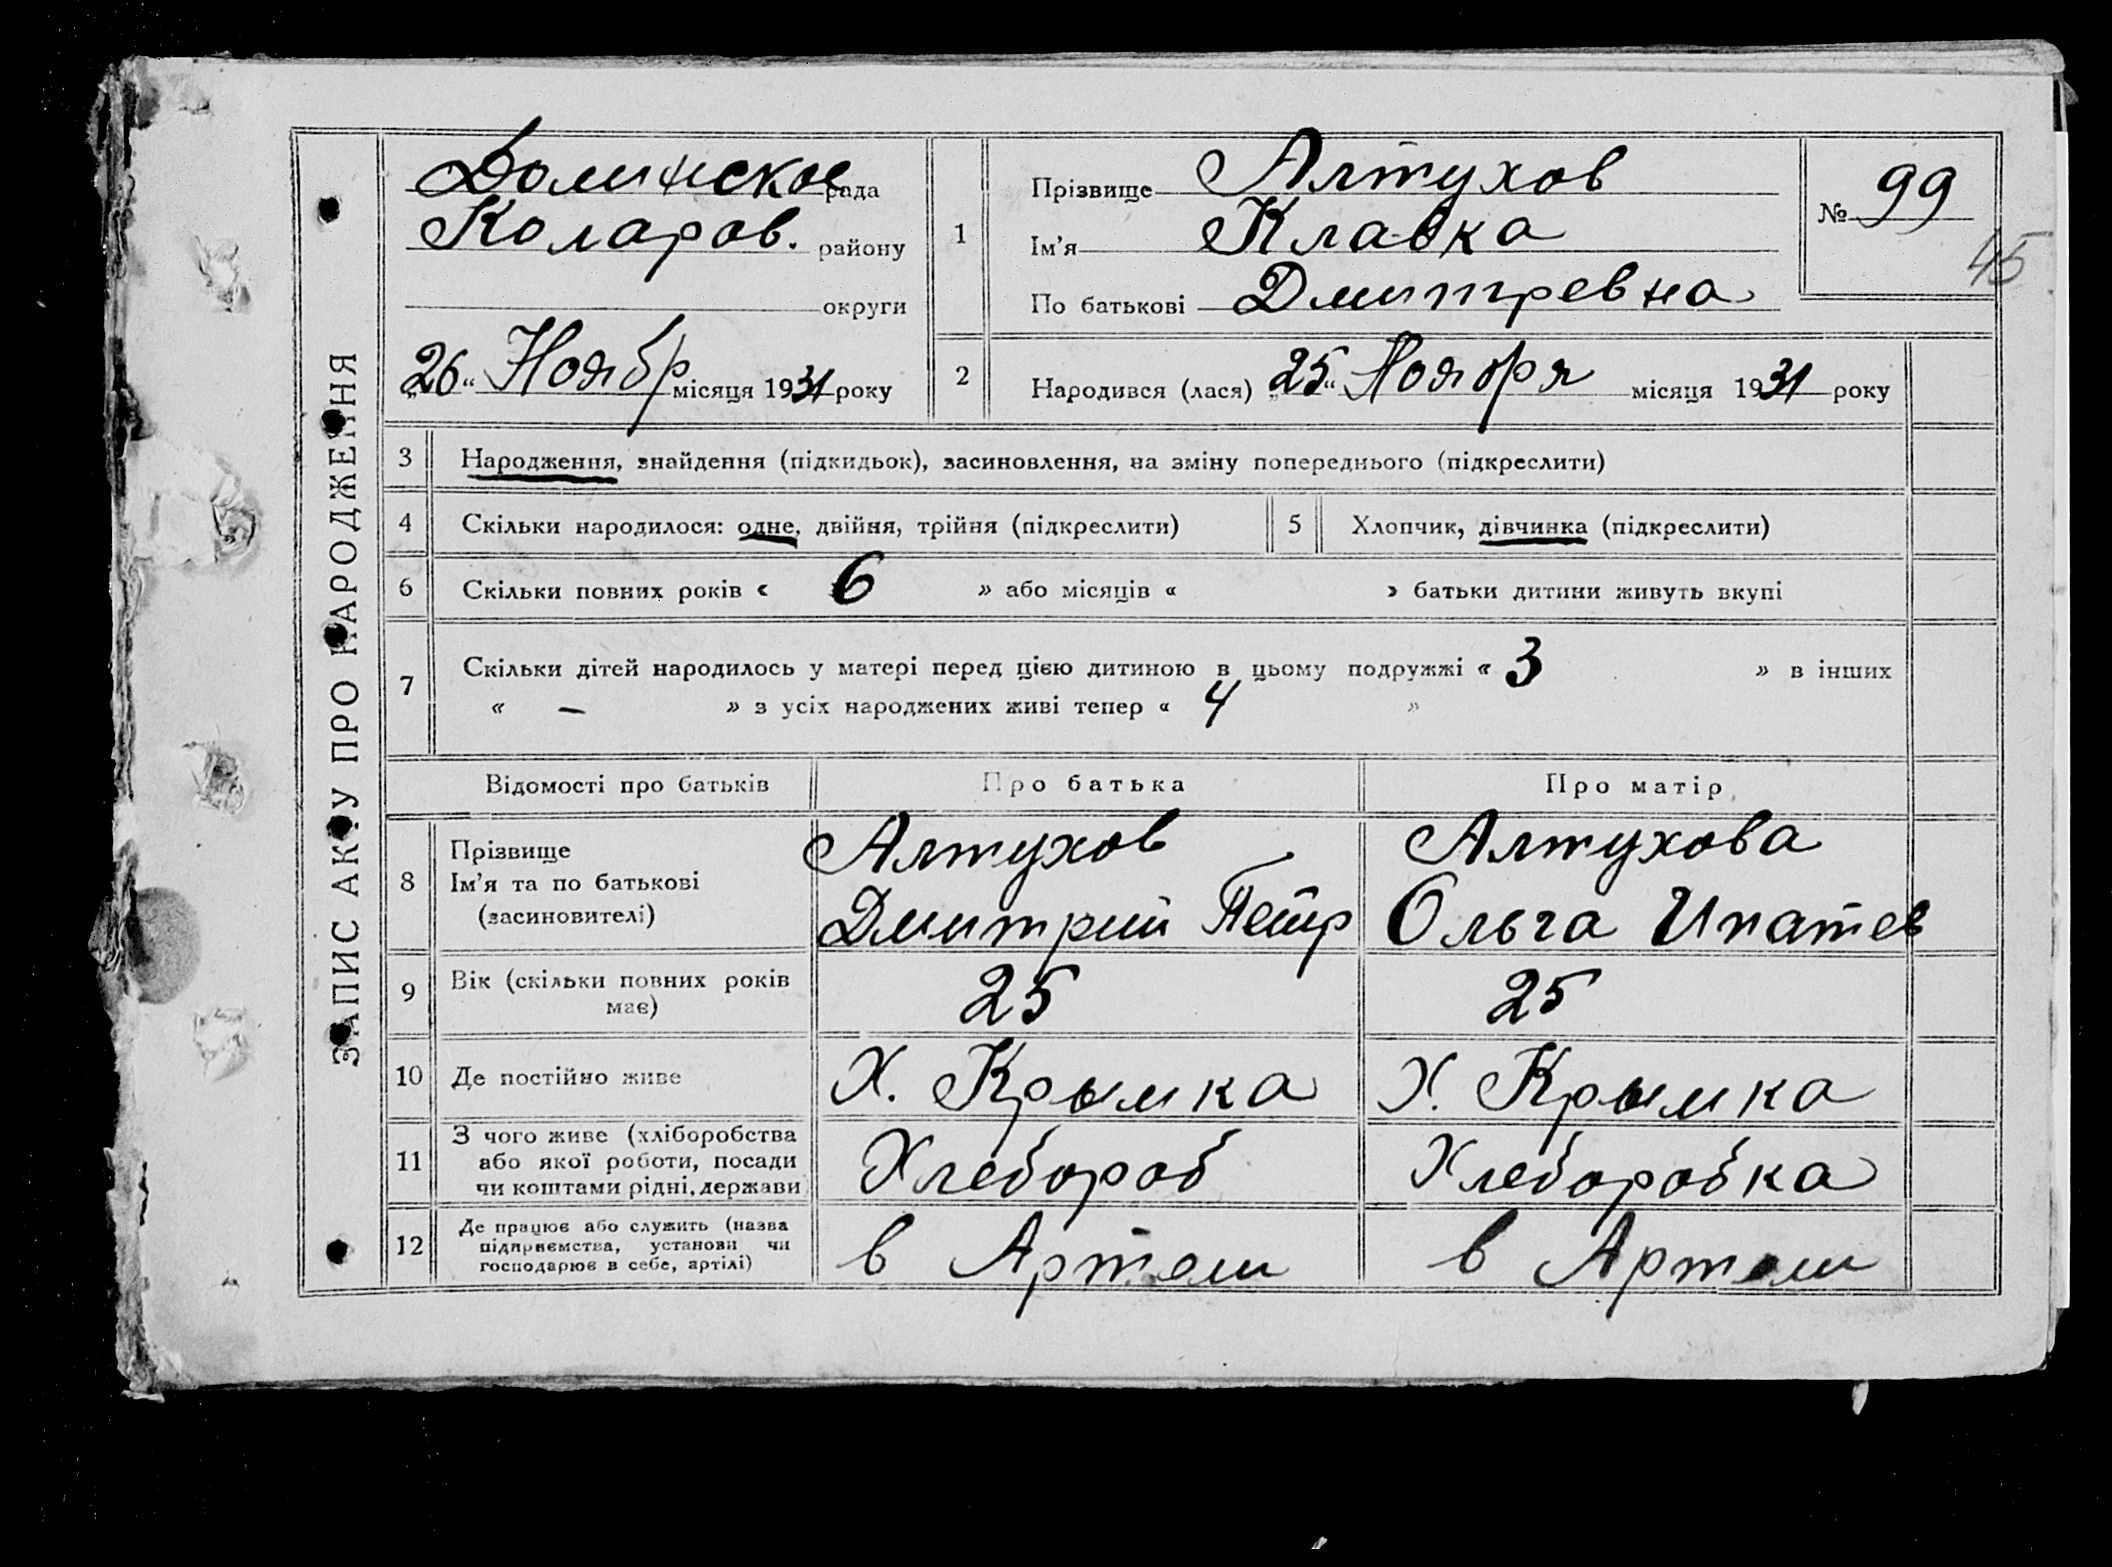 ЗАПИС АКТУ ПРО НАРОДЖЕННЯ
Долинское рада
Коларов. району
округи
„26“ Ноябр місяця 1931 року
1
Прізвище Алтухов
Ім’я Клавка
По батькові Дмитревна
№ 99
45
2
Народився (лася) „25“ Ноября місяця 1931 року
3 Народження, знайдення (підкидьок), засиновлення, на зміну попереднього (підкреслити)
4 Скільки народилося: одне, двійня, трійня (підкреслити)
5 Хлопчик, дівчинка (підкреслити)
6 Скільки повних років « 6 » або місяців « » батьки дитини живуть вкупі
7 Скільки дітей народилось у матері перед цією дитиною в цьому подружжі « 3 » в інших
« – » з усіх народжених живі тепер « 4 »
Відомості про батьків Про батька Про матір
8 Прізвище
Ім’я та по батькові
(засиновителі)
Алтухов
Дмитрий Петр
Алтухова
Ольга Ипатев
9 Вік (скільки повних років
має)
25 25
10 Де постійно живе Х. Крымка Х. Крымка
11 З чого живе (хліборобства
або якої роботи, посади
чи коштами рідні, держави
Хлебороб Хлеборобка
12 Де працює або служить (назва
підприємства, установи чи
господарює в себе, артілі)
в Артели в Артели